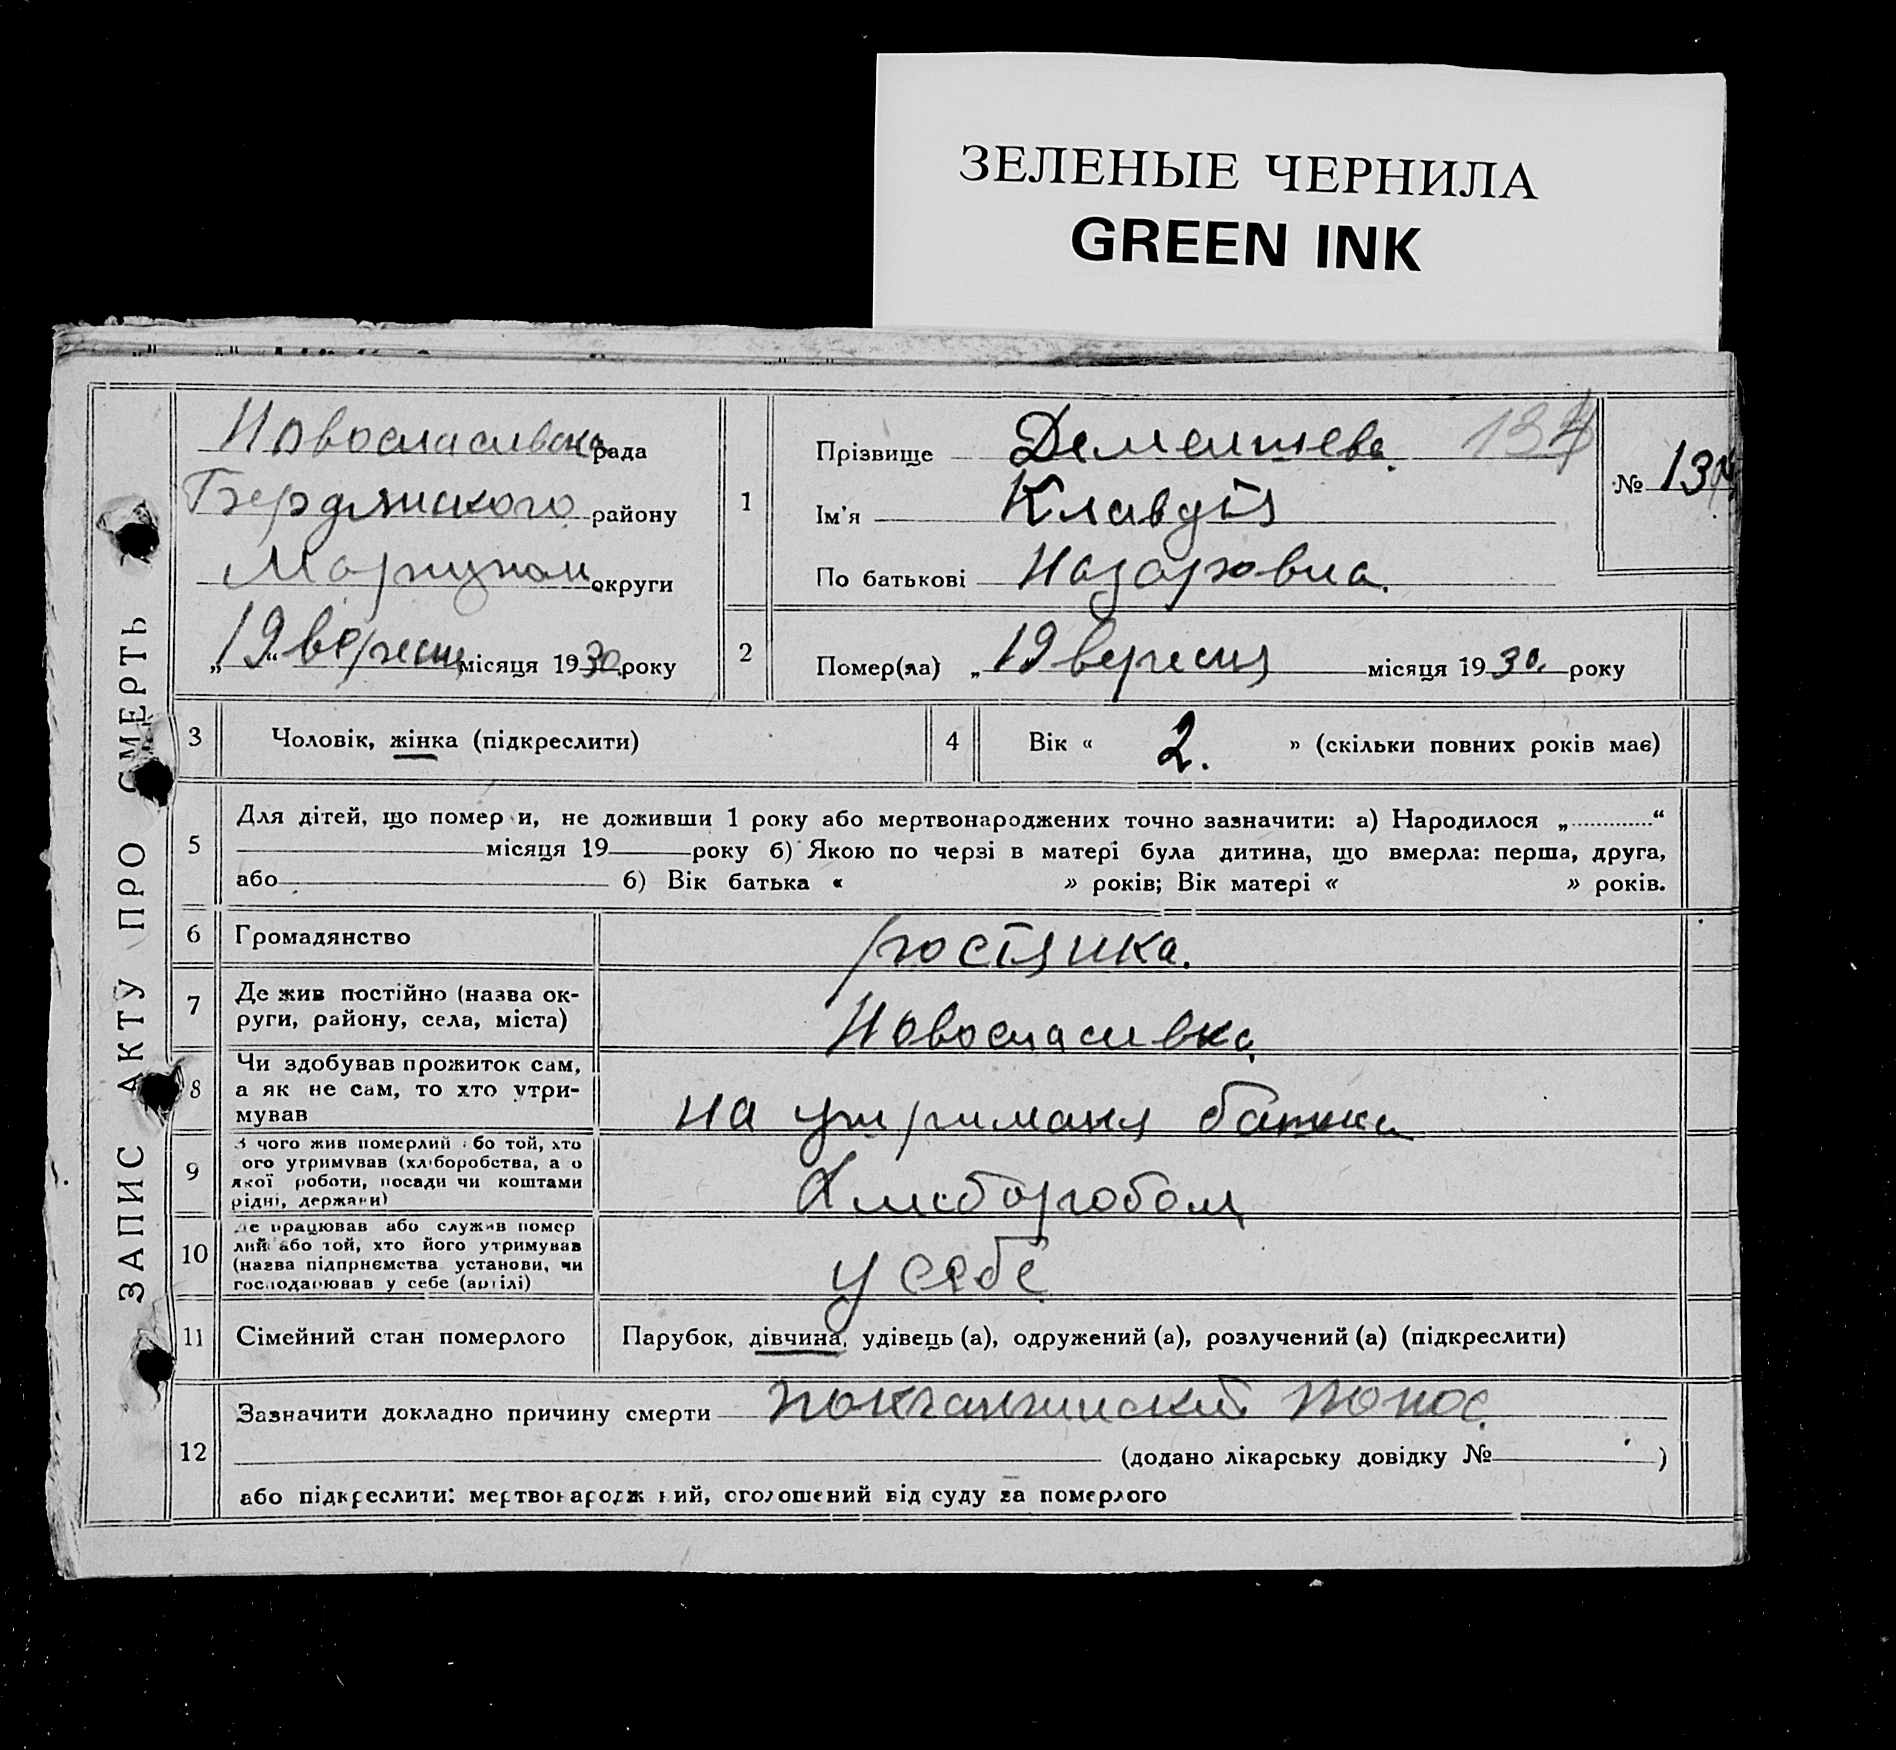 ЗЕЛЕНЫЕ ЧЕРНИЛА
GREEN INK
ЗАПИС АКТУ ПРО СМЕРТЬ
Новоспасивська рада
Бердянского району
Мариупол округи
„19“ вересня місяця 1930 року
1
Прізвище Дементьева 134
Ім'я Клавдія
По батькові Назаровна
№ 134
2
Помер(ла) „19 вересня місяця 1930. року
3 Чоловік, жінка (підкреслити)
4 Вік « 2. » (скільки повних років має)
5 Для дітей, що помер и, не доживши 1 року або мертвонароджених точно зазначити: а) Народилося „ “
місяця 19 року б) Якою по черзі в матері була дитина, що вмерла: перша, друга,
або б) Вік батька « » років; Вік матері « » років.
6 Громадянство
7 Де жив постійно (назва ок-
руги, району, села, міста) Новоспасивка
8 Чи здобував прожиток сам,
а як не сам, то хто утри-
мував на утриманя батька
9 З чого жив померлий або той, хто
ого утримував (хліборобства, а о
якої роботи, посади чи коштами
рідні, держави) Хлиборобом
10 Де працював або служив помер
лий або той, хто його утримував
(назва підприємства установи, чи
господарював у себе (артілі) у себе
11 Сімейний стан померлого Парубок, дівчина, удівець (а), одружений (а), розлучений (а) (підкреслити)
12 Зазначити докладно причину смерти понос
(додано лікарську довідку № )
або підкреслити: мертвонародж ний, оголошений від суду за померлого